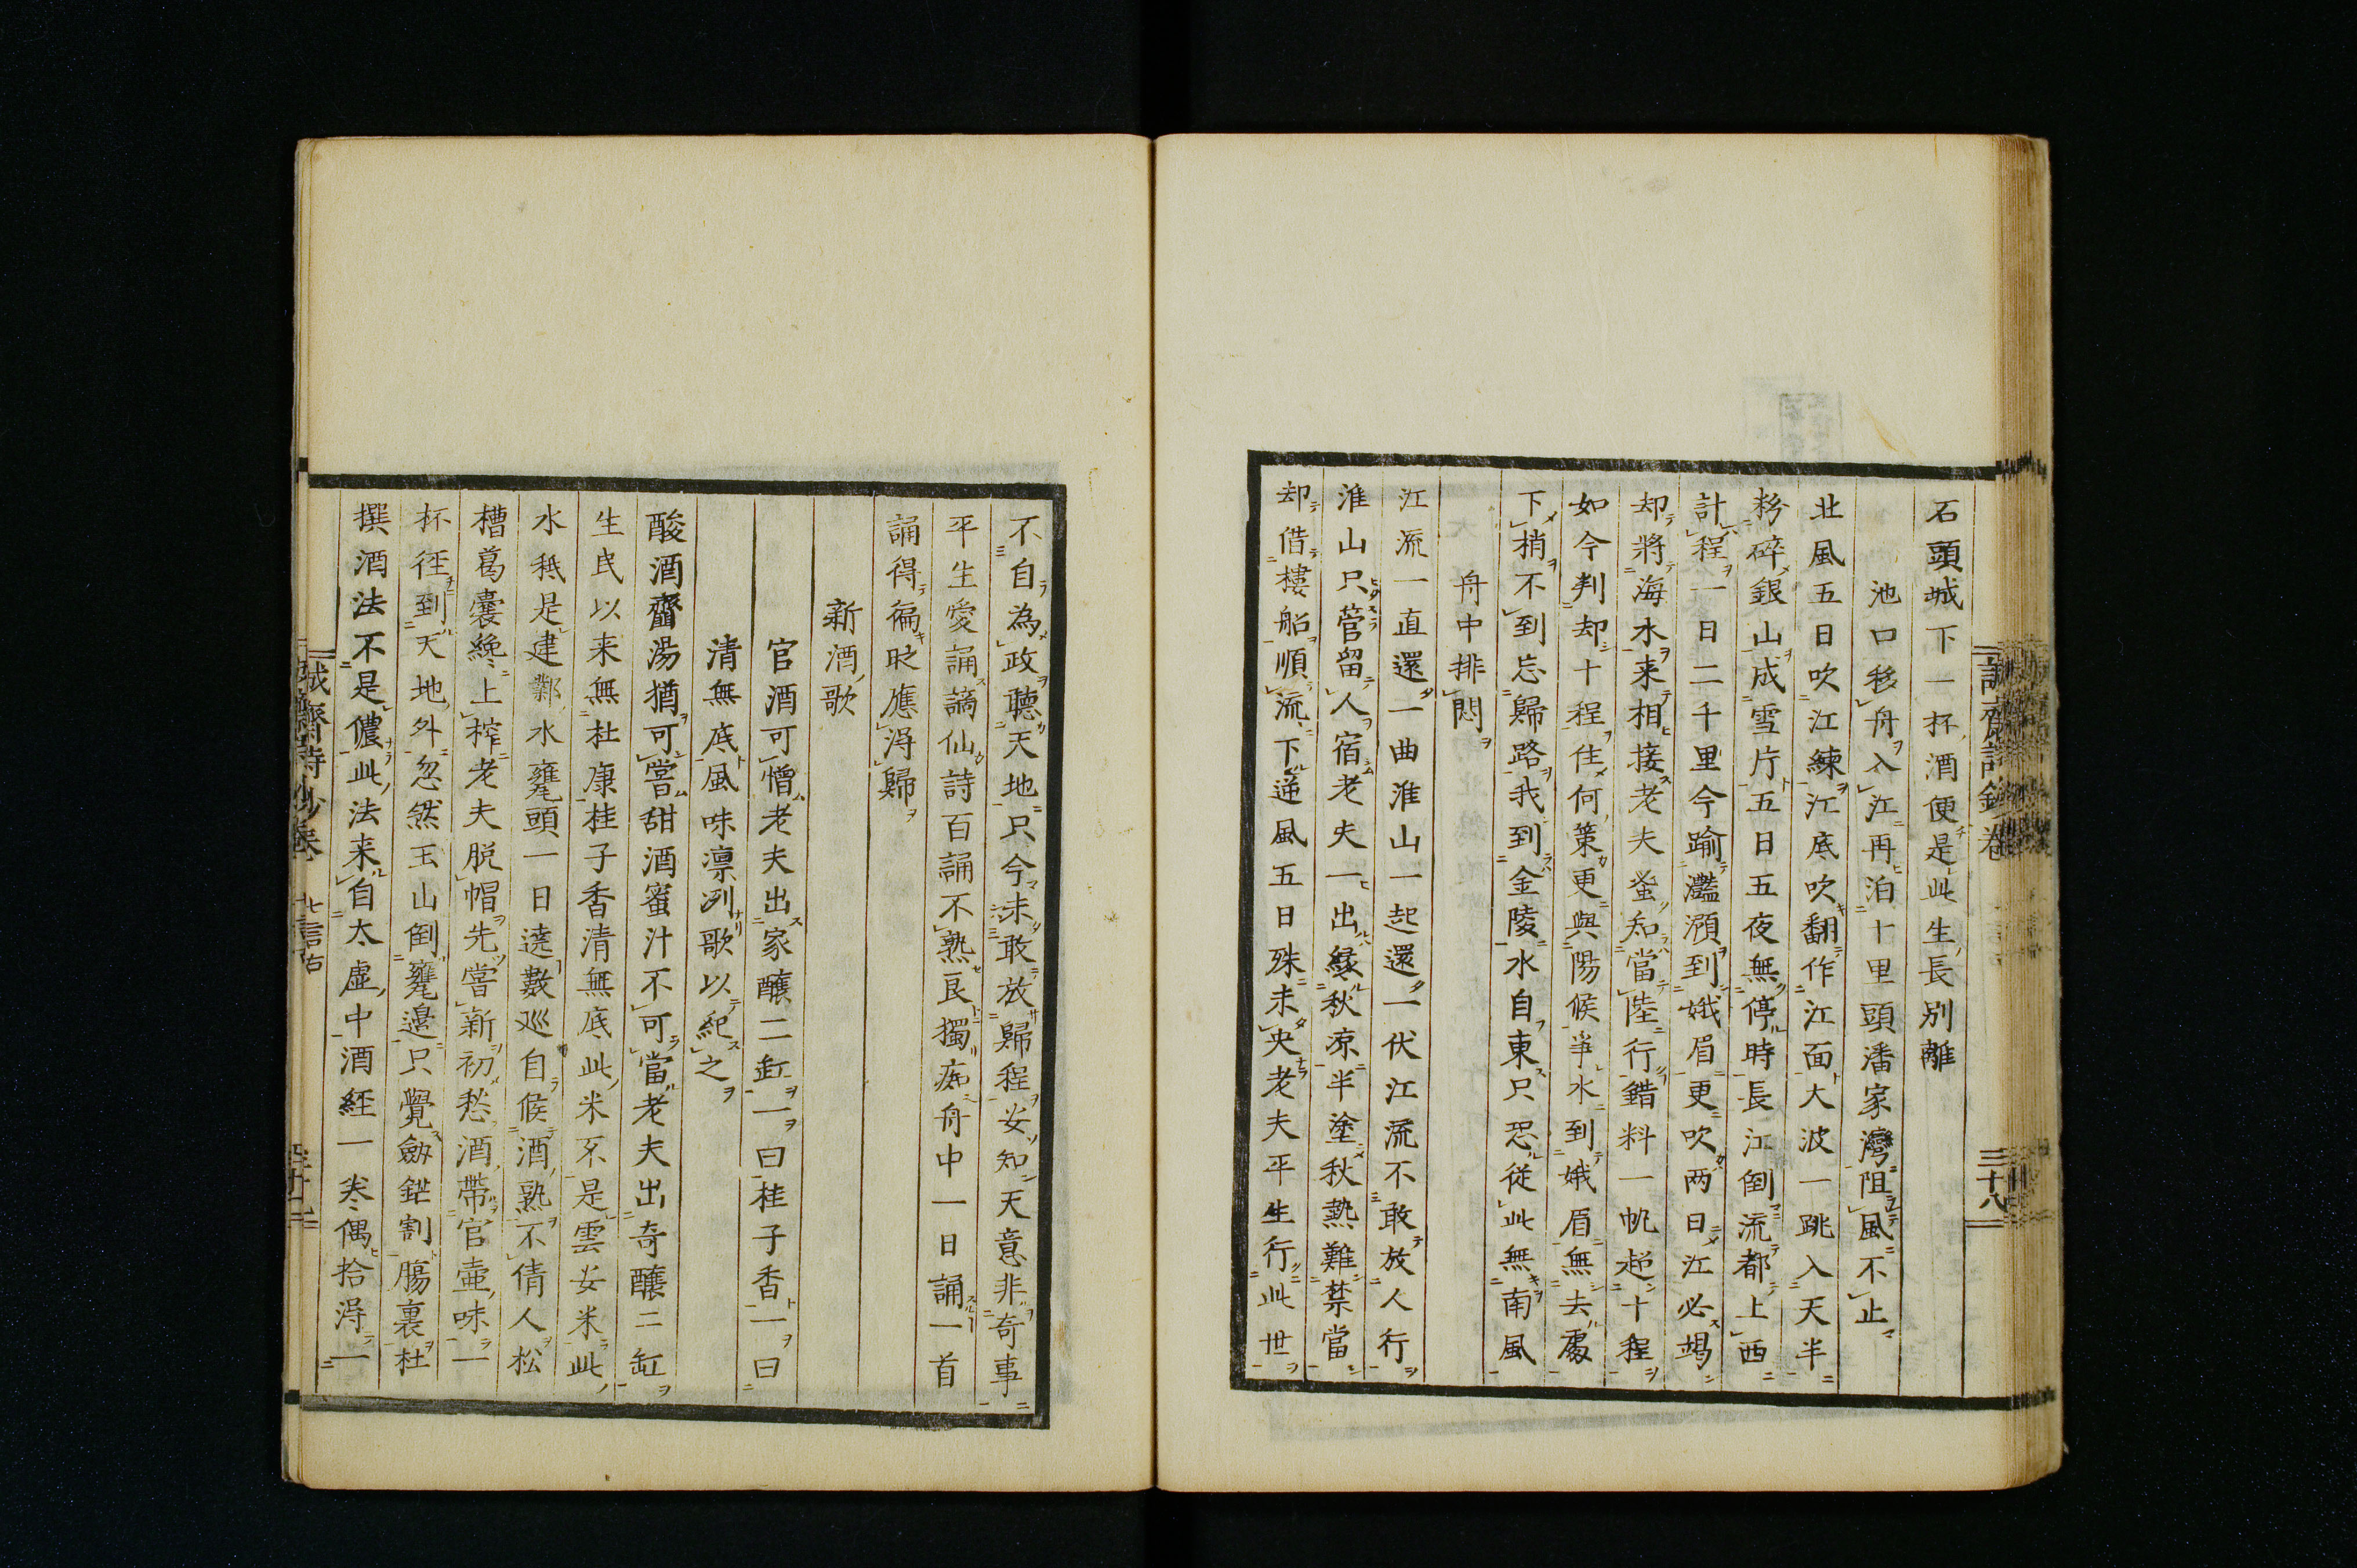 石頭城下一杯酒便是此生長別離
池口移舟入江再泊十里頭潘家灣阻風不止
北風五日吹江練江底吹翻作江面大波一跳入天半
粉碎銀山成雪片五日五夜無停時長江倒流都上西
計程一日二千里今踰灩澦到娥眉更吹両日江必竭
却將海水来相接老夫蚤知當陸行錯料一帆超十程
如今判却十程住何策更與陽候爭水到娥眉無去處
下梢不到忘歸路我到金陵水自東只恐従此無南風
舟中排悶
江流一直還一曲淮山一起還一伏江流不敢放人行
淮山只管留人宿老夫一出縁秋凉半塗秋熱難禁當
却借樓船順流下逆風五日殊未央老夫平生行此世
不自為政聴天地只今未敢放歸程安知天意非奇事
平生愛誦謫仙詩百誦不熟良獨痴舟中一日誦一首
誦得徧時應淂歸
新酒歌
官酒可憎老夫出家釀二缸一曰桂子香一曰
清無底風味凛冽歌以紀之
酸酒虀湯猶可嘗甜酒蜜汁不可當老夫出奇釀二缸
生民以来無杜康桂子香清無底此米不是雲安米此
水秪是建鄴水甕頭一日遶數巡自候酒熟不倩人松
槽葛囊纔上榨老夫脱帽先嘗新初愁酒帯官壷味一
杯徑到天地外忽然玉山倒甕邊只覺劔鋩割腸裏杜
撰酒法不是儂此法来自太虛中酒経一巻偶拾淂一
誠齋詩鈔巻
三十八
誠齋詩鈔巻 七言古